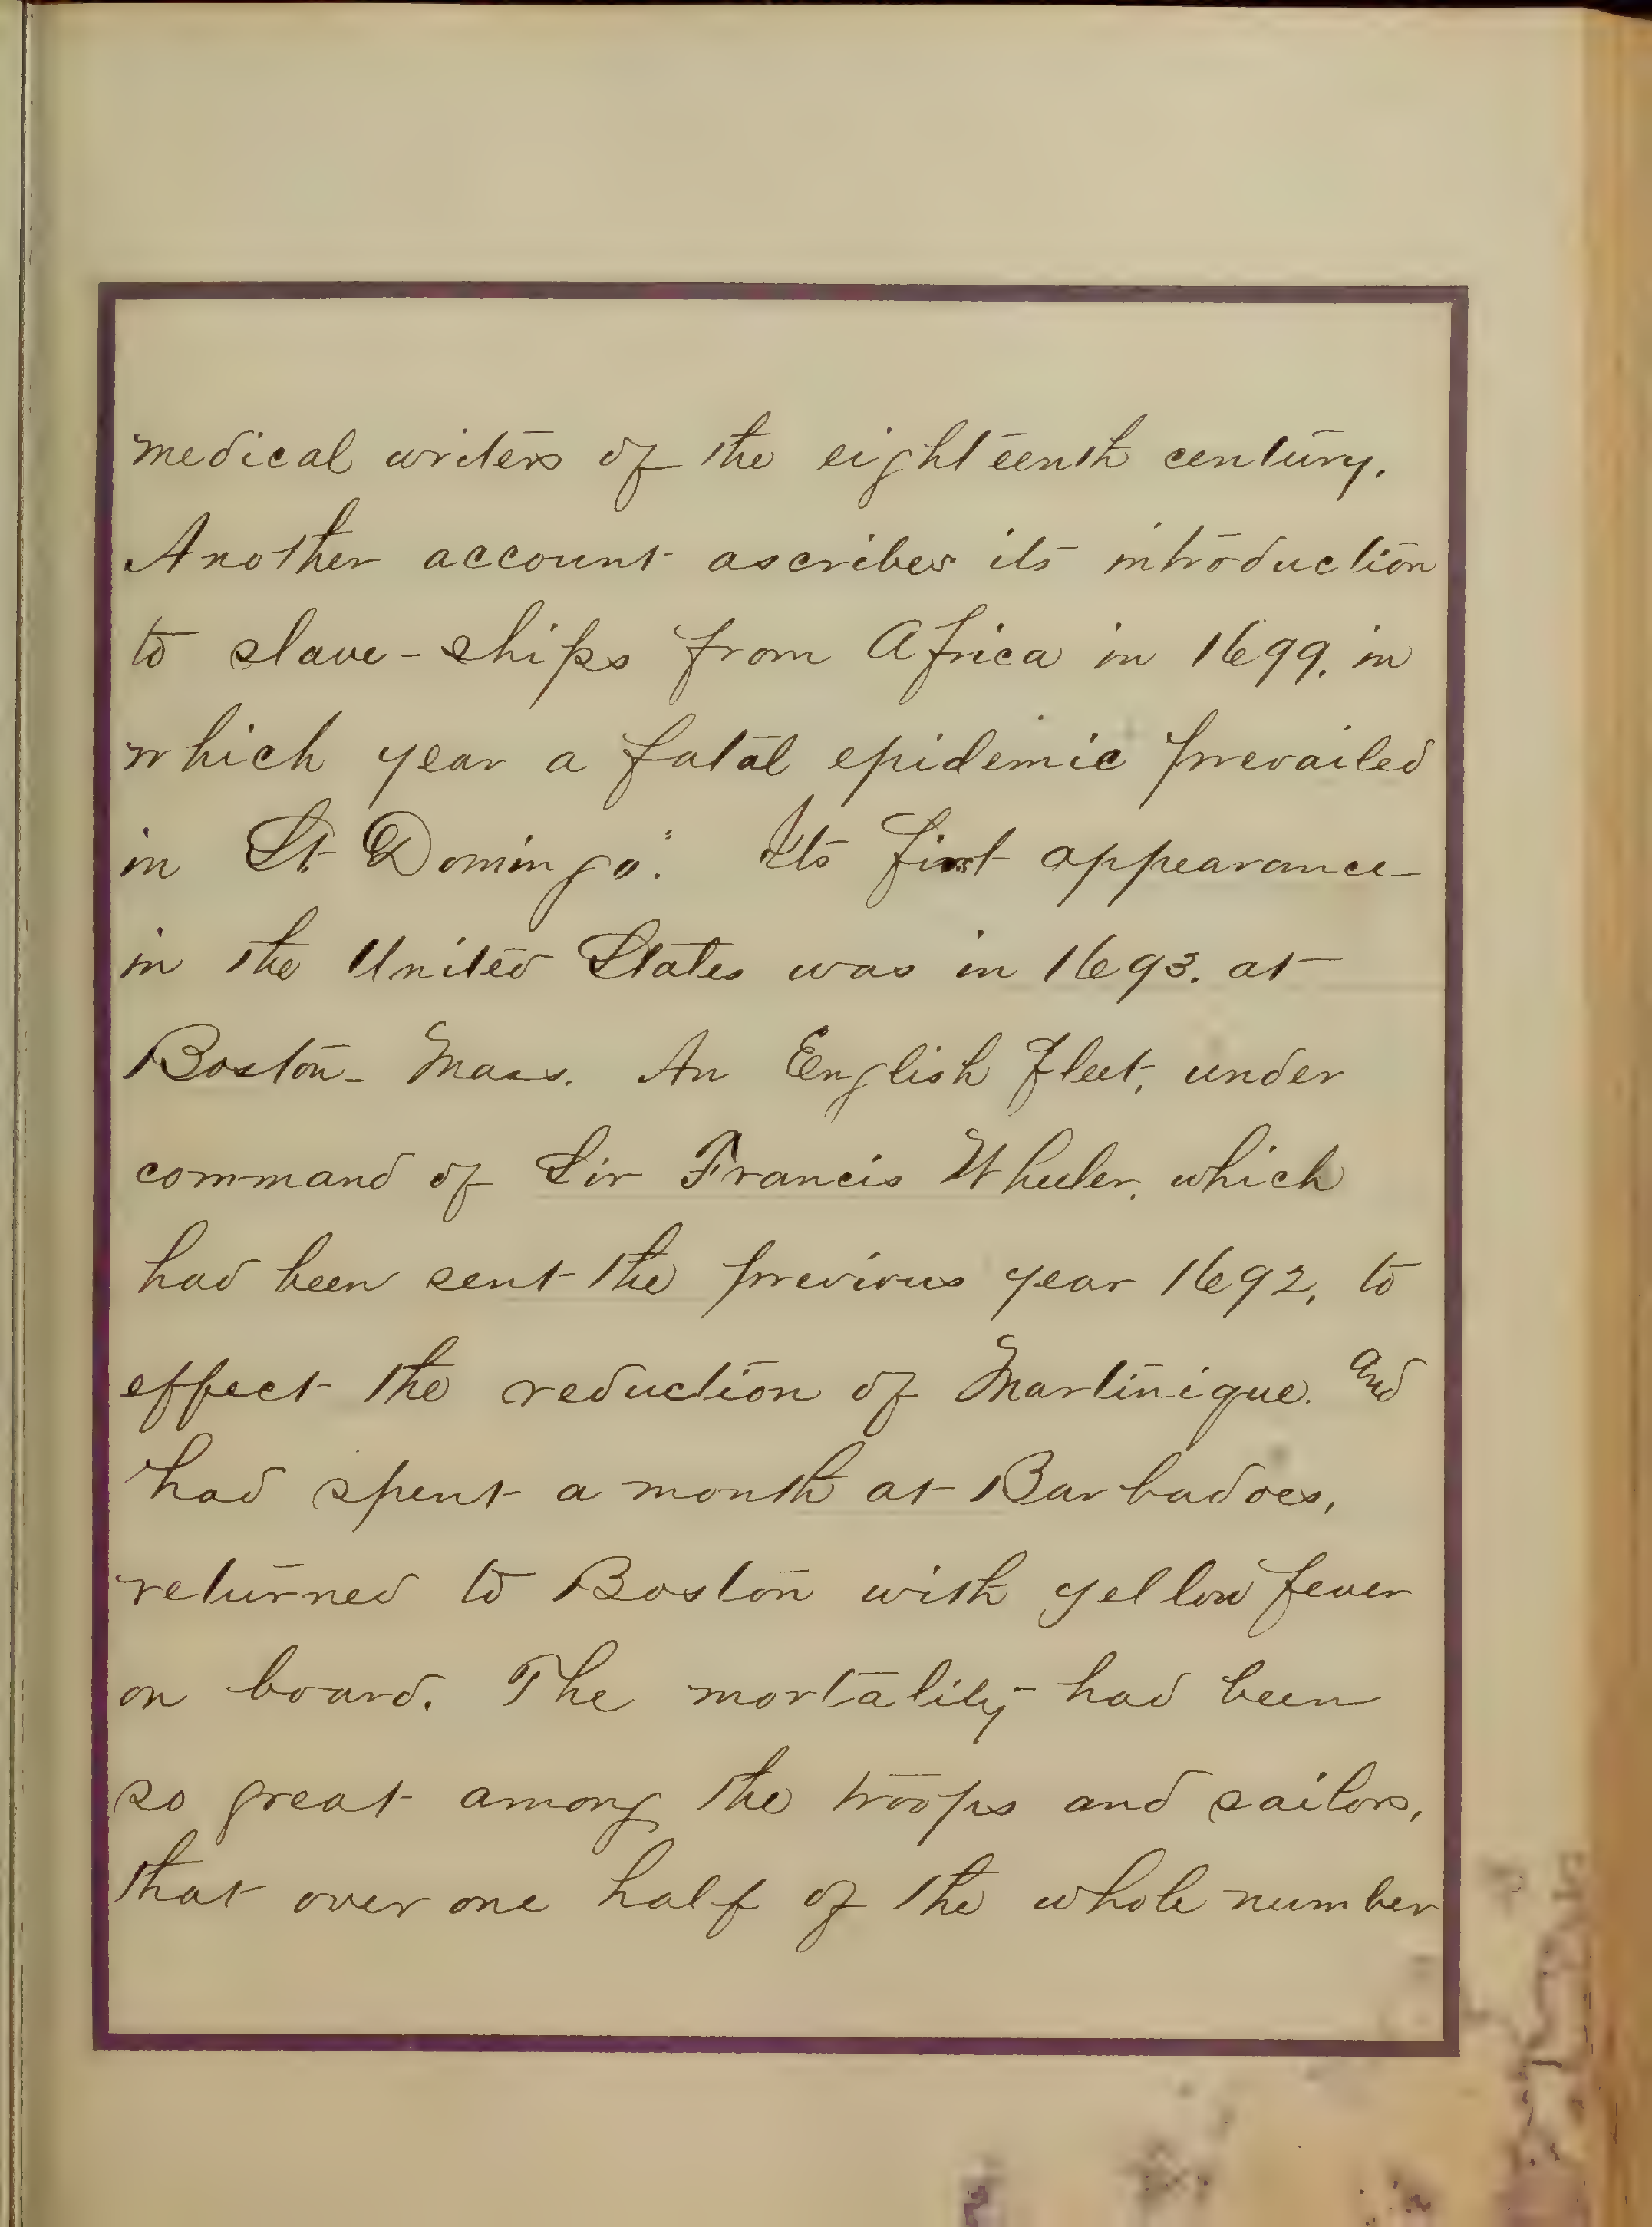 medical writers of the eighteenth century.
Another account ascribes its introduction
to slave-ships from Africa in 1699. in
which year a fatal epidemic prevailed
in St. Domingo". Its first appearance
in the United States was in 1693. at
Boston- Mass. An English fleet, under
command of Sir Francis Wheeler, which
had been sent the previous year 1692, to
effect the reduction of Martinique. and
had spent a month at Barbadoes,
returned to Boston with yellow fever
on board. The mortality had been
so great among the troops and sailors,
that over one half of the whole number